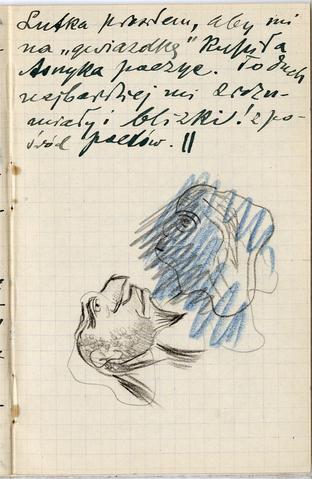 Lutka prosiłem, aby mi
na „gwiazdkę” kupiła
Asnyka poezye. To duch
najbardziej mi zrozu-
miały i blizki! z po-
śród poetów.